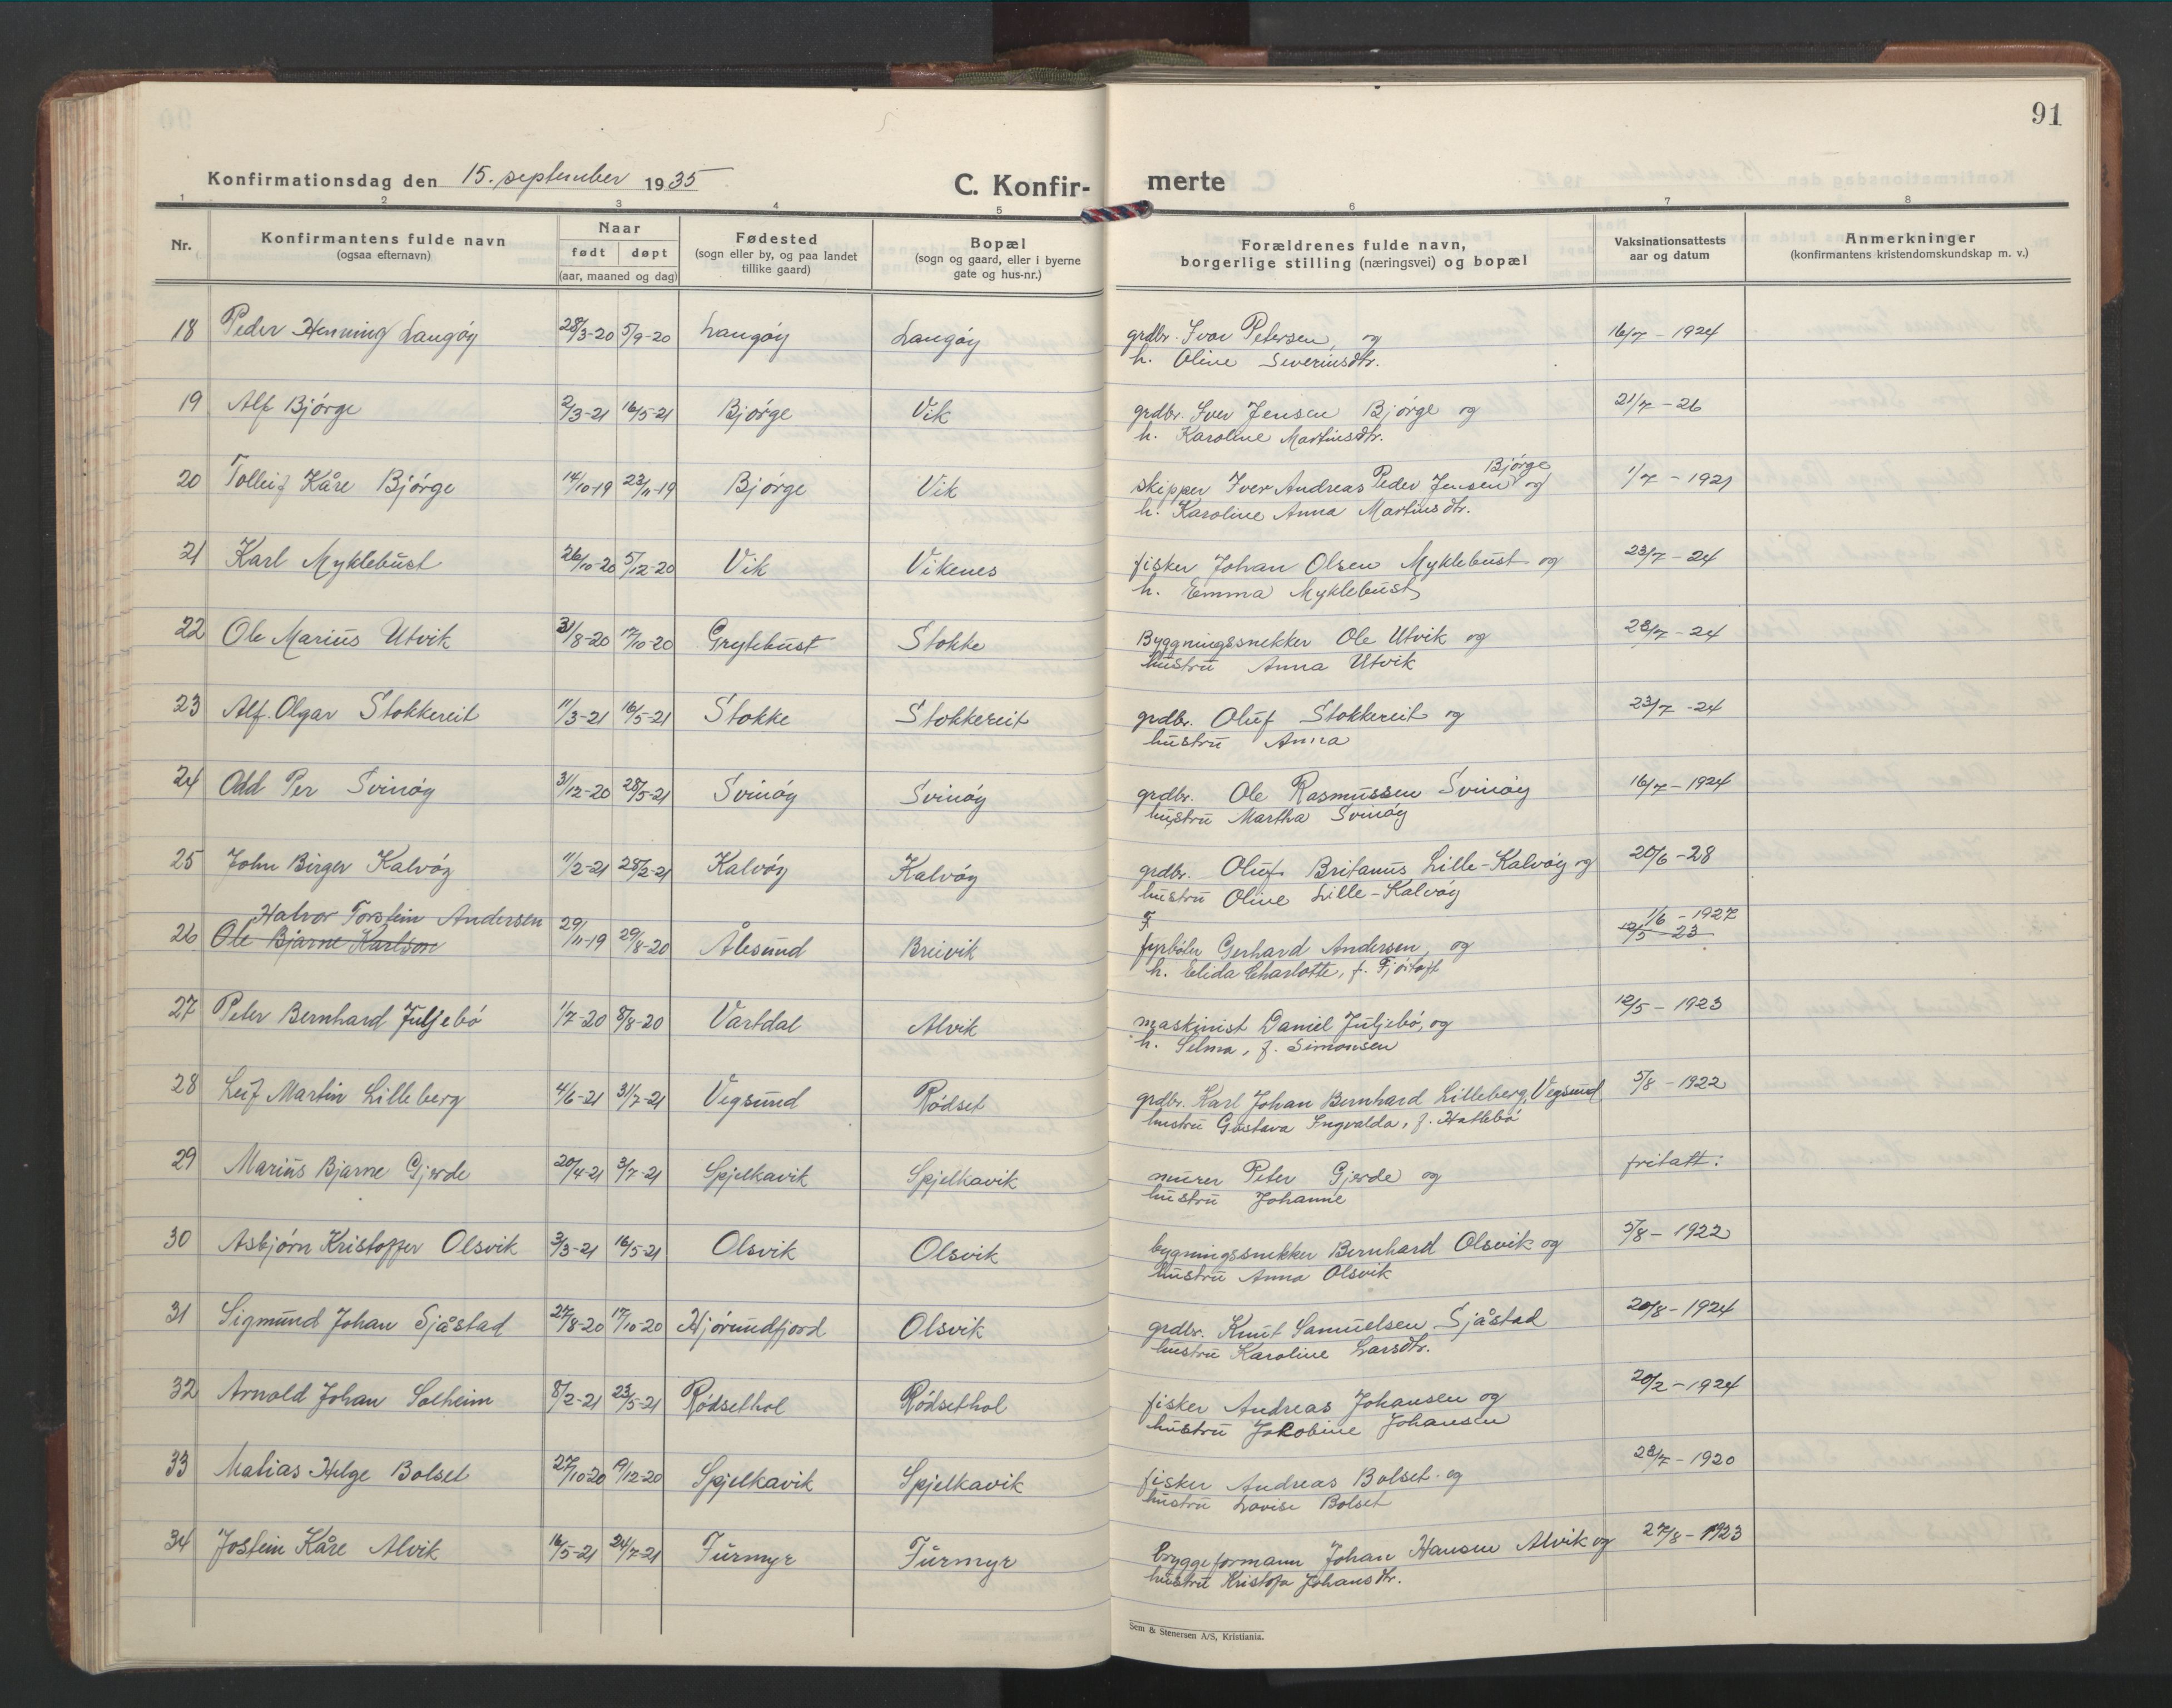 91
Konfirmationsdag den 15. september 1935
C. Konfir- merte
1 2 3 4 5 6 7 8
Nr.
Konfirmantens fulde navn
(ogsaa efternavn)
Naar
født døpt
(aar, maaned og dag)
Fødested
(sogn eller by, og paa landet
tillike gaard)
Bopæl
(sogn og gaard, eller i byerne
gate og hus-nr.)
Forældrenes fulde navn,
borgerlige stilling (næringsvei) og bopæl
Vaksinationsattests
aar og datum
Anmerkninger
(konfirmantens kristendomskundskap m. v.)
18 Peder Henning Langöy 28/3-20 5/9-20 Langöy Langöy grdbr. Ivar Petersen, og 16/7 - 1924
h. Oline Severinsdtr.
19 Alf Björge 2/3-21 16/5-21 Björge Vik grdbr. Iver Jensen Björge og 21/7 - 26
h. Karoline Martinsdtr.
20 Tolleif Kåre Björge 14/10-19 23/11-19 Björge Vik skipper Iver Andreas Peder Jensen Björge og 1/7 - 1921
h. Karoline Anna Martinsdtr.
21 Karl Myklebust 26/10-20 5/12-20 Vik Vikenes fisker Johan Olsen Myklebust og 23/7 - 24
h. Emma Myklebust
22 Ole Marius Utvik 31/8-20 17/10-20 Grytebust Stokke Byggningssnekker Ole Utvik og 23/7 - 24
hustru Anna Utvik
23 Alf Olgar Stokkereit 11/3-21 16/5-21 Stokke Stokkereit grdbr. Oluf Stokkereit og 23/7 - 24
hustru Anna
24 Odd Per Svinöy 31/12-20 28/5-21 Svinöy Svinöy grdbr. Ole Rasmussen Svinöy 16/7 - 1924
hustru Martha Svinöy
25 John Birger Kalvöy 11/2-21 28/2-21 Kalvöy Kalvöy grdbr. Oluf Britanus Lille-Kalvöy og 20/6 - 28
hustru Oline Lille-Kalvöy
Halvor Torstein Andersen F 1/6 - 1927
26 Ole Bjarne Karlson 29/11-19 29/8-20 Ålesund Breivik fyrböter Gerhard Andersen, og 12/5 - 23
h. Elida Charlotte, f. Fjörtoft
27 Peter Bernhard Juljebö 1/7-20 8/8-20 Vartdal Alvik maskinist Daniel Juljebö, og 12/5 - 1923
h. Selma, f. Simonsen
28 Leif Martin Lilleberg 4/6-21 31/7-21 Vegsund Rödset grdbr. Karl Johan Bernhard Lilleberg, Vegsund 5/8 - 1922
hustru Gustava Ingvalda, f. Hatlebö
29 Marius Bjarne Gjerde 20/4-21 3/7-21 Spjelkavik Spjelkavik murer Peter Gjerde og fritatt:
hustru Johanne
30 Asbjörn Kristoffer Olsvik 3/3-21 16/5-21 Olsvik Olsvik bygningssnekker Bernhard Olsvik og 5/8 - 1922
hustru Anna Olsvik
31 Sigmund Johan Sjåstad 27/8-20 17/10-20 Hjörundfjord Olsvik grdbr. Knut Samuelsen Sjåstad 20/8 - 1924
hustru Karoline Larsdtr.
32 Arnold Johan Solheim 8/2-21 23/5-21 Rödsethol Rödsethol fisker Andreas Johansen og 20/2 - 1924
hustru Jakobine Johansen
33 Matias Helge Bolset 27/10-20 19/12-20 Spjelkavik Spjelkavik fisker Andreas Bolset og 23/7 - 1920
hustru Lovise Bolset
34 Jostein Kåre Alvik 16/5-21 24/7-21 Furmyr Furmyr bryggeformann Johan Hansen Alvik og 27/8 - 1923
hustru Kristofa Johansdtr.
Sem & Stenersen A/S, Kristiania.